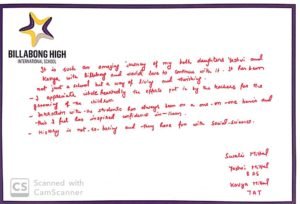 BILLABONG HIGH
INTERNATIONAL SCHOOL
It is such an amazing journey of my both daughters Yashvi and
Kavya with Billabong and would love to continue with it. It has been
not just a school but a way of living and thinking.
- I appreciate whole heartedly the efforts put in by the teachers for the
grooming of the children.
- Interaction with the students has always been on a one-on-one basis and
that I feel has inspired confidence in them.
- History is not so boring and they have fun with Social-science.
Mittal
Yashvi Mittal
8
Kavya Mittal
CS Scanned with
CamScanner